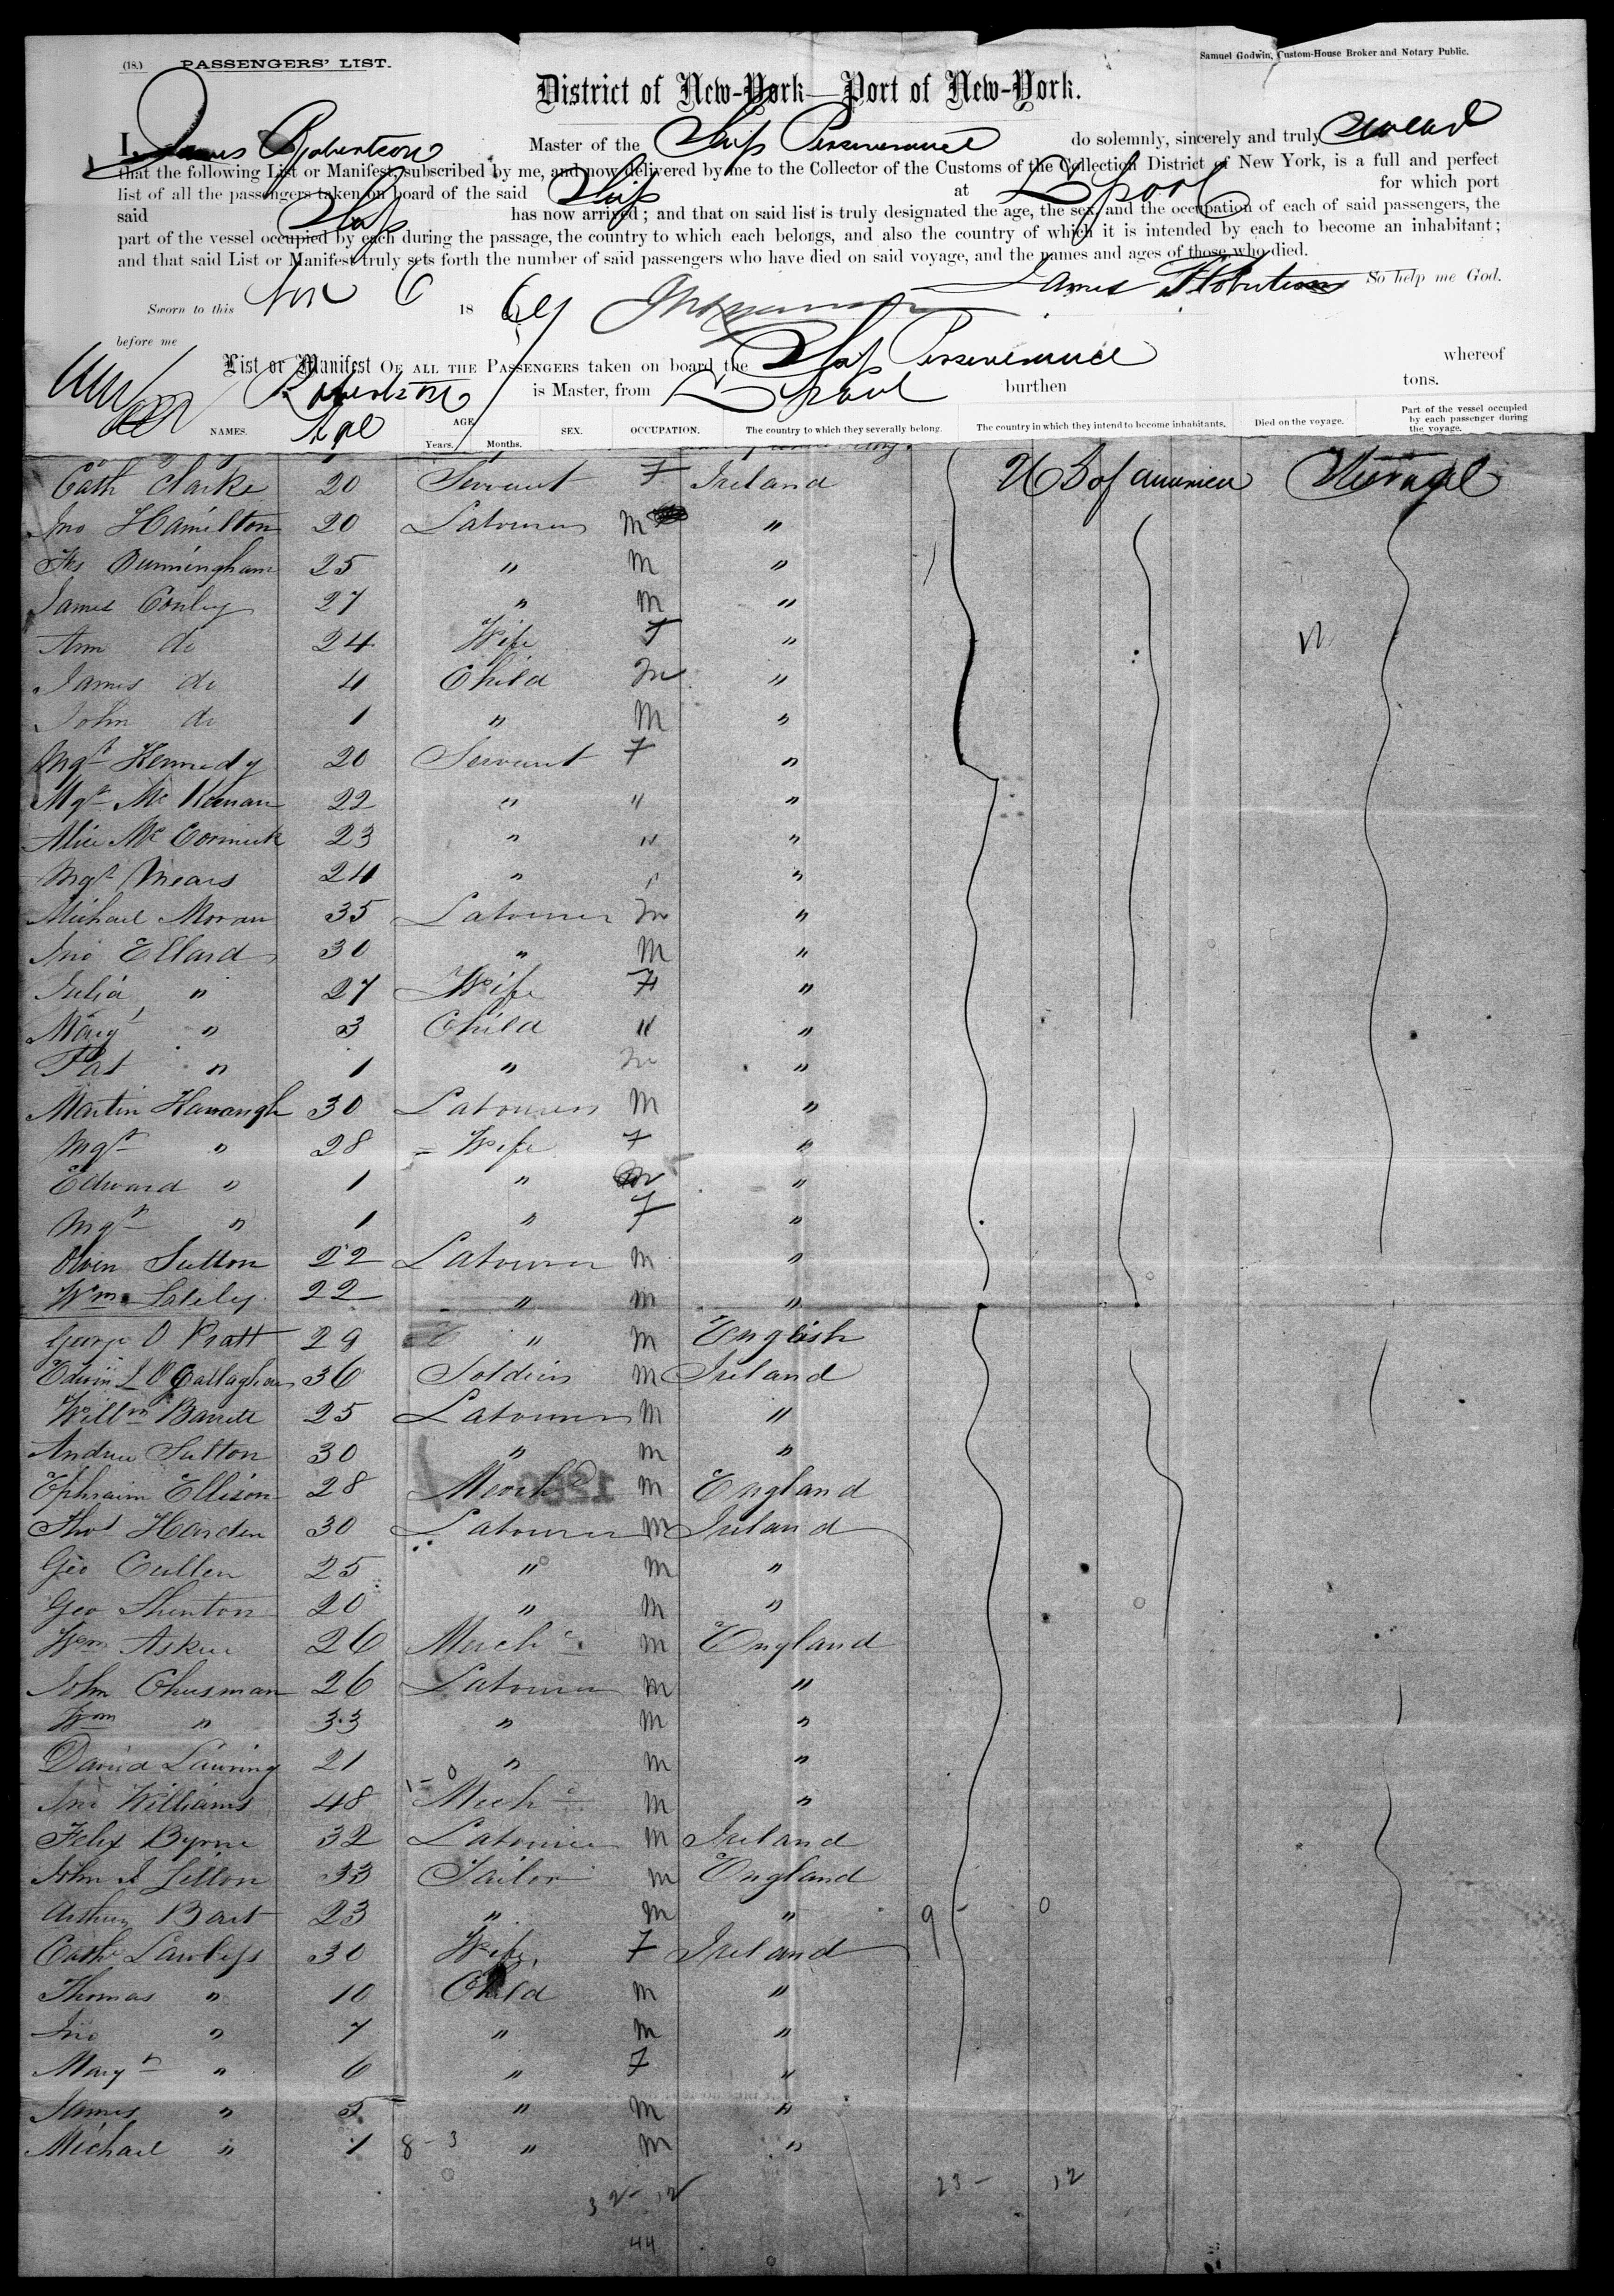 (18.) PASSENGERS' LIST.
Samuel Godwin, Custom-House Broker and Notary Public.
District of New-York—Port of New-York.
I, James Robertson Master of the Ship Perseverance do solemnly, sincerely and truly swear
that the following List or Manifest, subscribed by me, and now delivered by me to the Collector of the Customs of the Collection District of New York, is a full and perfect
list of all the passengers taken on board of the said Ship at Lpool for which port
said Ship has now arrived; and that on said list is truly designated the age, the sex, and the occupation of each of said passengers, the
part of the vessel occupied by each during the passage, the country to which each belongs, and also the country of which it is intended by each to become an inhabitant;
and that said List or Manifest truly sets forth the number of said passengers who have died on said voyage, and the names and ages of those who died.
James Robertson So help me God.
Sworn to this Nov 6 18
before me
List or Manifest OF ALL THE PASSENGERS taken on board the Ship Perseverance whereof
Robertson is Master, from Lpool burthen tons.
NAMES. Age AGE Years. Months. SEX. OCCUPATION. The country to which they severally belong. The country in which they intend to become inhabitants. Died on the voyage. Part of the vessel occupied by each passenger during the voyage.
Cath Clarke 20 Servant F Ireland U S of America Steerage
Jno Hamilton 20 Labourer M "
Js Bunningham 25 " M "
James Conley 27 " M "
Ann do 24 Wife F "
James do 4 Child M "
John do 1 " M "
Mgt Kennedy 20 Servant F "
Mgt Mc Keenan 22 " " "
Alice Mc Cormick 23 " " "
Mgt Mears 24 " " "
Michael Moran 35 Labourer M "
Jno Ellard 30 " M "
Julia " 27 Wife F "
Mary " 3 Child " "
Pat " 1 " M "
Martin Kavanagh 30 Labourer M "
Mgt " 28 Wife F "
Edward " 1 " M "
Mgt " 1 " F "
Owen Sutton 22 Labourer M "
Wm Lately 22 " M "
George O Pratt 29 " M English
Edwin L O Gallaghan 36 Soldier M Ireland
Willm Barrett 25 Labourer M "
Andrew Sutton 30 " M "
Ephraim Ellison 28 Mech c M England
Thos Harden 30 Labourer M Ireland
Geo Cullen 25 " M "
Geo Shinton 20 " M "
Wm Askew 26 Mech c M England
John Chusman 26 Labourer M "
Wm " 33 " M "
David Lauring 21 " M "
Jno Williams 48 Mech c M "
Felix Byrne 32 Labourer M Ireland
John J Litton 33 Tailor M England
Arthur Bart 23 " M " 9 - 0
Cath Lawless 30 Wife F Ireland
Thomas " 10 Child M "
Jno " 7 " M "
Mary " 6 " F "
James " 5 " M "
Michael " 1 8 - 3 " M "
32 - 12 23 - 12
44